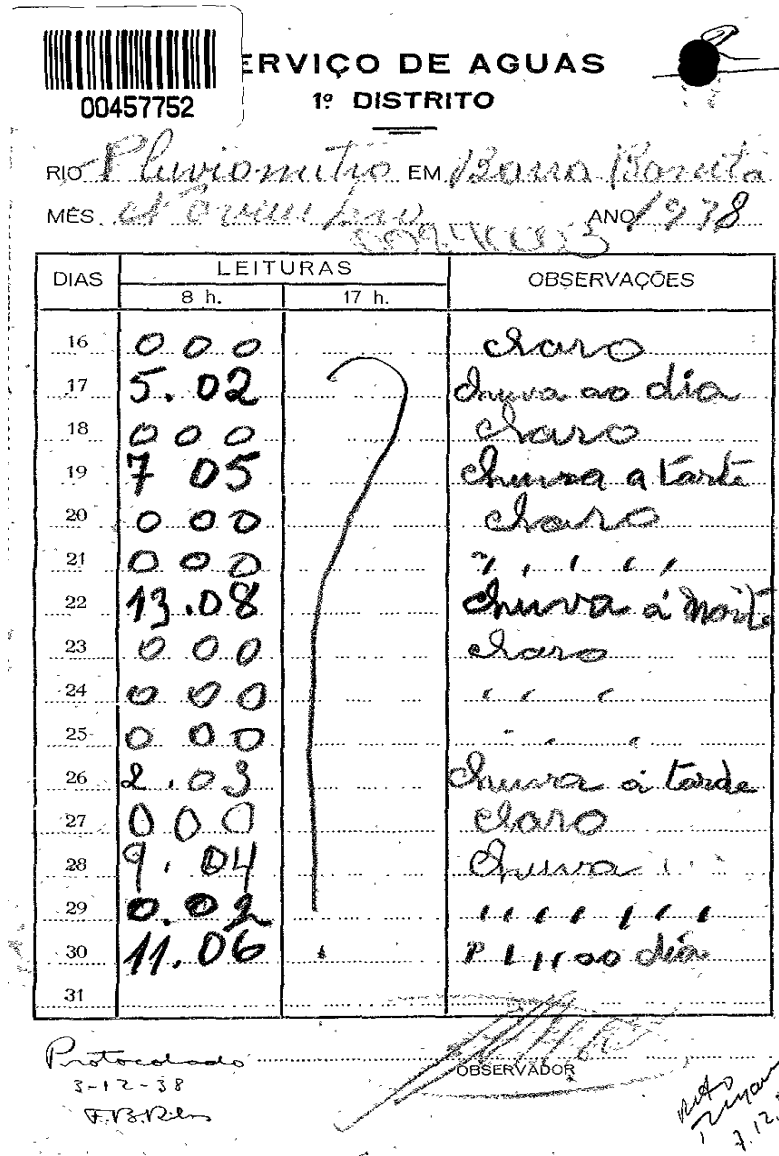 00457752
SERVIÇO DE AGUAS
1º DISTRITO
RIO Pluviometro EM Barra Bonita
MÊS Novembro ANO 1938
DIAS LEITURAS OBSERVAÇÕES
8 h. 17 h.
16 0 0 0 claro
17 5.02 chuva ao dia
18 0 0 0 claro
19 7 05 chuva a tarte
20 0 0 0 claro
21 0 0 0 " " " " "
22 13.08 chuva á noite
23 0 0 0 claro
24 0 0 0 " " "
25 0 0 0 " " "
26 2.03 chuva á tarde
27 0 0 0 claro
28 9.04 chuva
29 0.02 " " " " " " "
30 11.06 " " ao dia
31
Protocolado
OBSERVADOR
3-12-38